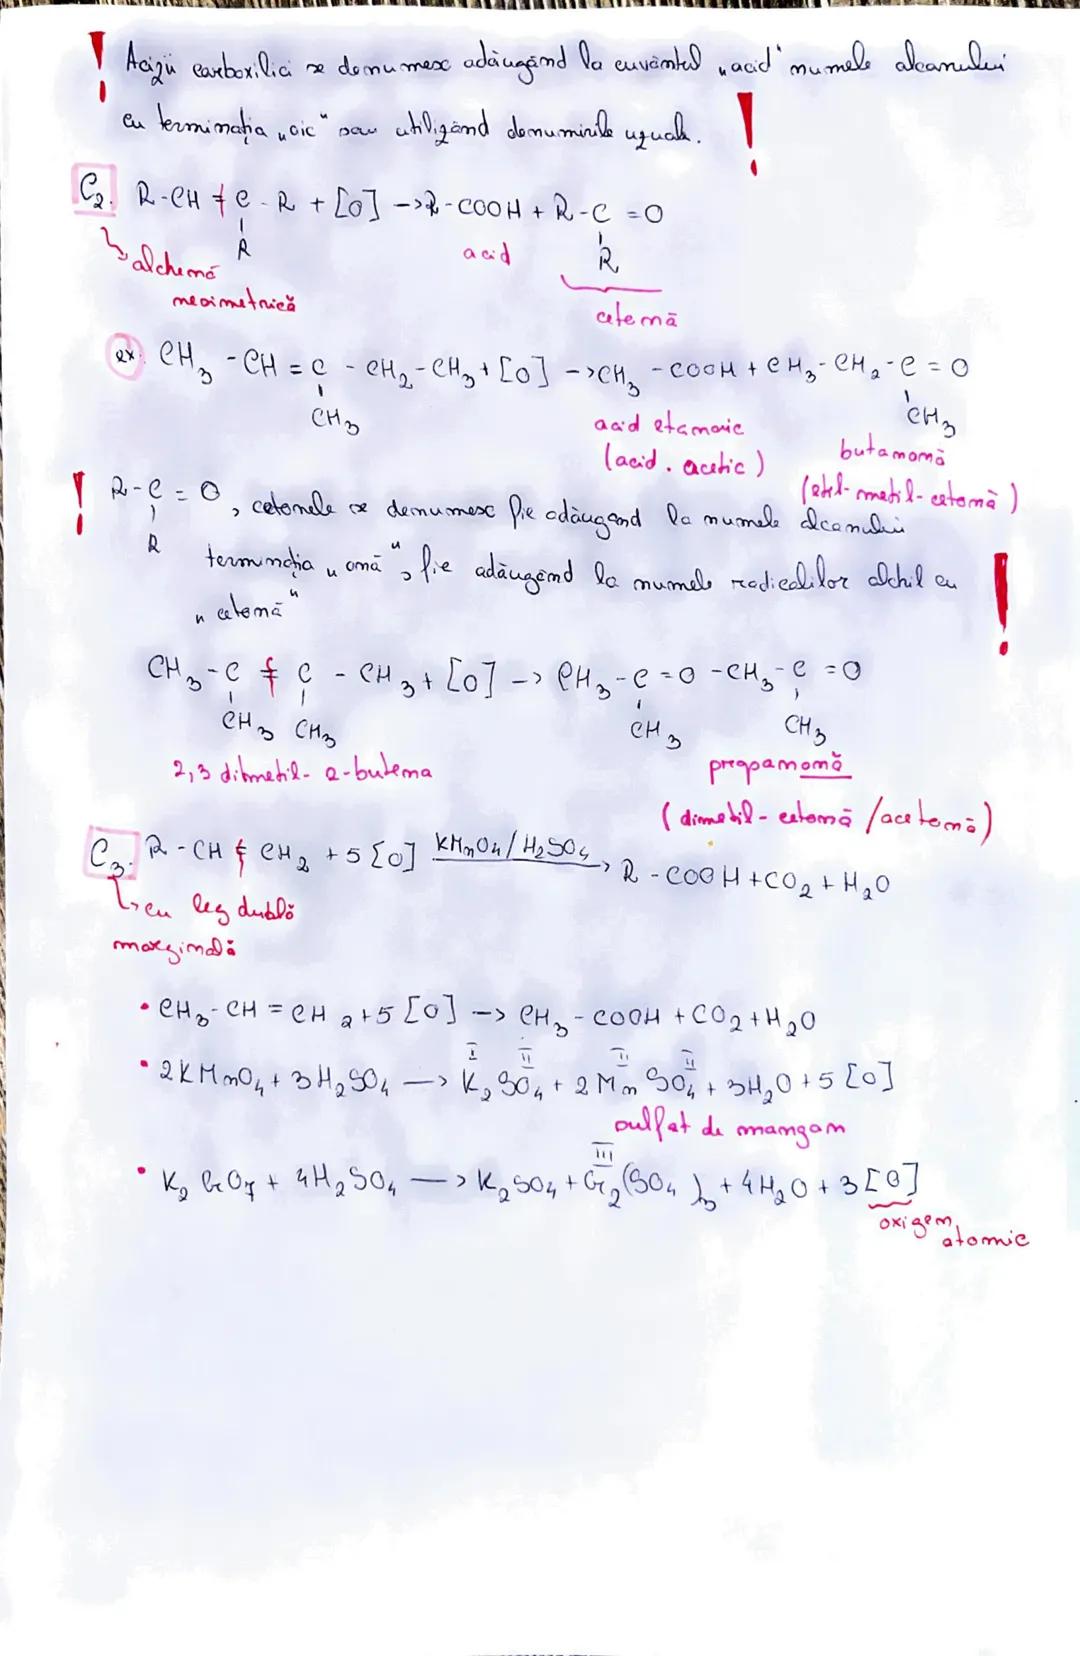 ! Acizii carboxilici se denumesc adăugând la cuvântul „acid" numele alcanului
cu terminația „oic" sau utilizând denumirile uzuale. !
C2. R-CH = C - R + [O] -> R-COOH + R-C = O
R
R
acid
alchenă
nesimetrică
cetonă
ex. CH3 - CH = C - CH2 - CH3 + [O] -> CH3 - COOH + CH3 - CH2 - C = O
CH3
CH3
acid etanoic
butanonă
(acid. acetic)
(etil-metil-cetonă)
! R-C = O, cetonele se denumesc fie adăugând la numele alcanului
R
terminația „onă", fie adăugând la numele radicalilor alchil cu
„cetonă" !
CH3-C = C - CH3 + [O] -> CH3-C=O -CH3-C=O
CH3 CH3
CH3
CH3
2,3 dimetil-2-butena
propanonă
(dimetil-cetonă/acetonă)
C3. R - CH = CH2 + 5 [O] KMnO4/H2SO4 -> R - COOH + CO2 + H2O
cu leg dublă
marginală
• CH3-CH = CH2 + 5 [O] -> CH3 - COOH + CO2 + H2O
I II II II
• 2KMnO4 + 3H2SO4 -> K2SO4 + 2MnSO4 + 3H2O + 5 [O]
sulfat de mangan
III
• K2Cr2O7 + 4H2SO4 -> K2SO4 + Cr2(SO4)3 + 4H2O + 3[O]
oxigen
atomic